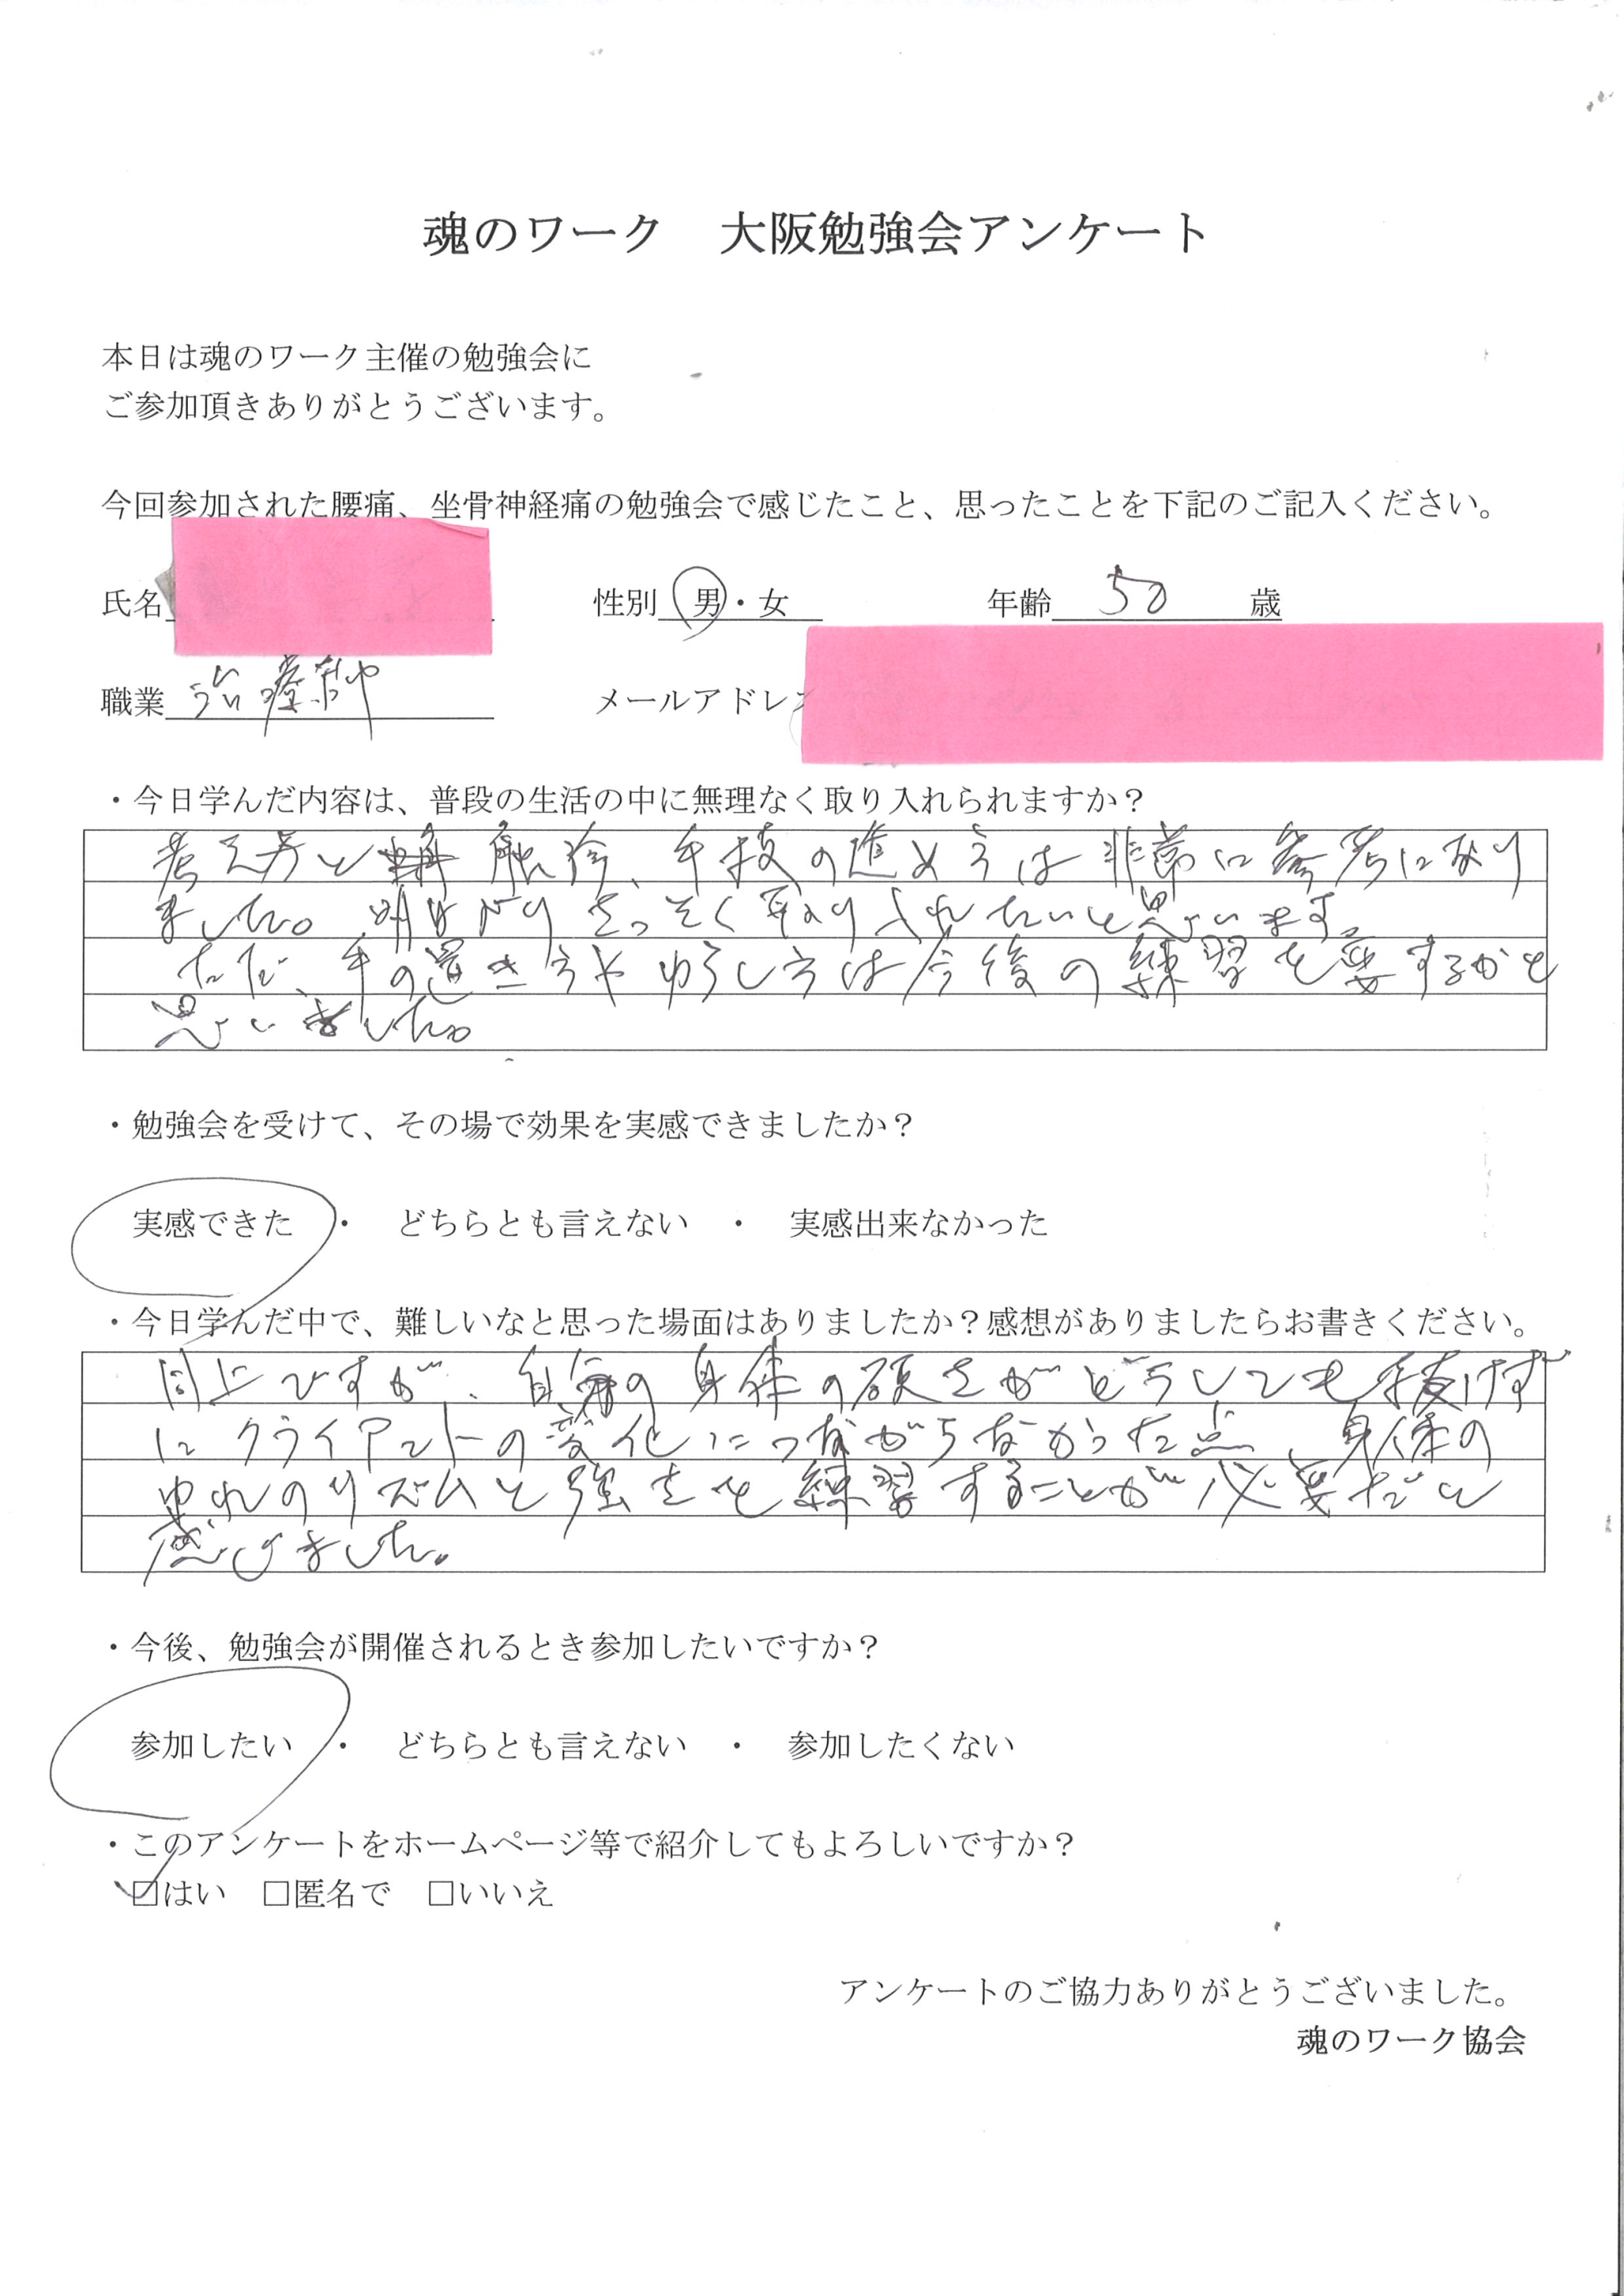 魂のワーク 大阪勉強会アンケート
本日は魂のワーク主催の勉強会に
ご参加頂きありがとうございます。
今回参加された腰痛、坐骨神経痛の勉強会で感じたこと、思ったことを下記のご記入ください。
氏名 性別 男・女 年齢 50 歳
職業 治療師 メールアドレ
・今日学んだ内容は、普段の生活の中に無理なく取り入れられますか？
考え方と 触診、手技の進め方は非常に参考になり
ました。明日よりさっそく取り入れたいと思います。
ただ、手の置き方やゆらし方は今後の練習を要するかと
思いました。
・勉強会を受けて、その場で効果を実感できましたか？
実感できた ・ どちらとも言えない ・ 実感出来なかった
・今日学んだ中で、難しいなと思った場面はありましたか？感想がありましたらお書きください。
同上ですが、自分の身体の硬さがどうしても抜けず
にクライアントの変化につながらなかった点、身体の
ゆれのリズムと強さを練習することが必要だと
感じました。
・今後、勉強会が開催されるとき参加したいですか？
参加したい ・ どちらとも言えない ・ 参加したくない
・このアンケートをホームページ等で紹介してもよろしいですか？
☑はい □匿名で □いいえ
アンケートのご協力ありがとうございました。
魂のワーク協会